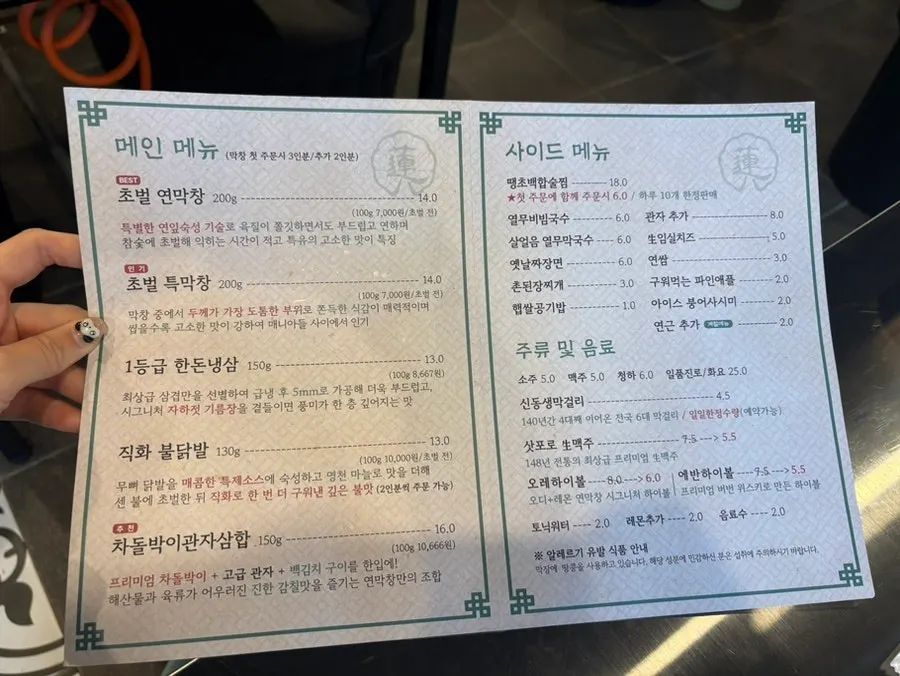 메인 메뉴 (막창 첫 주문시 3인분/추가 2인분)
BEST
초벌 연막창 200g ---------- 14.0
(100g 7,000원/초벌 전)
특별한 연잎숙성 기술로 육질이 쫄깃하면서도 부드럽고 연하며
참숯에 초벌해 익히는 시간이 적고 특유의 고소한 맛이 특징
인기
초벌 특막창 200g ---------- 14.0
(100g 7,000원/초벌 전)
막창 중에서 두께가 가장 도톰한 부위로 쫀득한 식감이 매력적이며
씹을수록 고소한 맛이 강하여 매니아들 사이에서 인기
1등급 한돈냉삼 150g ---------- 13.0
(100g 8,667원)
최상급 삼겹만을 선별하여 급냉 후 5mm로 가공해 더욱 부드럽고,
시그니처 자하젓 기름장을 곁들이면 풍미가 한 층 깊어지는 맛
직화 불닭발 130g ---------- 13.0
(100g 10,000원/초벌 전)
무뼈 닭발을 매콤한 특제소스에 숙성하고 영천 마늘로 맛을 더해
센 불에 초벌한 뒤 직화로 한 번 더 구워낸 깊은 불맛 (2인분씩 주문 가능)
추천
차돌박이관자삼합 150g ---------- 16.0
(100g 10,666원)
프리미엄 차돌박이 + 고급 관자 + 백김치 구이를 한입에!
해산물과 육류가 어우러진 진한 감칠맛을 즐기는 연막창만의 조합
蓮
사이드 메뉴
땡초백합술찜 --------- 18.0
★첫 주문에 함께 주문시 6.0 / 하루 10개 한정판매
열무비빔국수 ---- 6.0
살얼음 열무막국수 ---- 6.0
옛날짜장면 --------- 6.0
촌된장찌개 --------- 3.0
햅쌀공기밥 --------- 1.0
관자 추가 --------- 8.0
生임실치즈 --------- 5.0
연쌈 --------- 3.0
구워먹는 파인애플 ---- 2.0
아이스 붕어사시미 ---- 2.0
연근 추가 계절메뉴 ---------- 2.0
蓮
주류 및 음료
소주 5.0 맥주 5.0 청하 6.0 일품진로/화요 25.0
신동생막걸리 ---------- 4.5
140년간 4대째 이어온 전국 6대 막걸리 / 일일한정수량(예약가능)
삿포로 生맥주 ---------- 7.5 ---> 5.5
148년 전통의 최상급 프리미엄 生맥주
오레하이볼 ---- 8.0 --> 6.0
오디+레몬 연막창 시그니처 하이볼
에반하이볼 ---- 7.5 ---> 5.5
프리미엄 버번 위스키로 만든 하이볼
토닉워터 ---- 2.0 레몬추가 ---- 2.0 음료수 ---- 2.0
※ 알레르기 유발 식품 안내
막장에 땅콩을 사용하고 있습니다. 해당 성분에 민감하신 분은 섭취에 주의하시기 바랍니다.